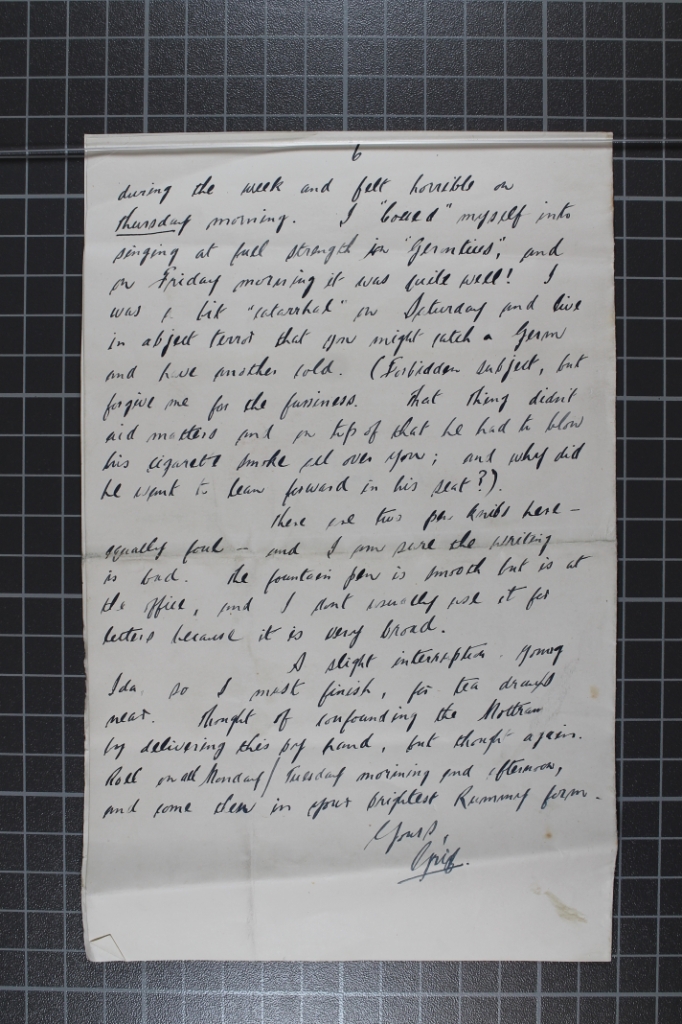 6
during the week and felt horrible on
Thursday morning. I "Coued" myself into
singing at full strength in "Gerontius", and
on Friday morning it was quite well! I
was a bit "catarrhal" on Saturday and live
in abject terror that you might catch a Germ
and have another cold. (Forbidden subject, but
forgive me for the fussiness. That thing didn't
aid matters and on top of that he had to blow
his cigarette smoke all over you; and why did
he want to lean forward in his seat?).
There are two pen knibs here -
equally foul - and I am sure the writing
is bad. The fountain pen is smooth but is at
the office, and I don't usually use it for
letters because it is very broad.
A slight interruption. Young
Ida, so I must finish, for tea draws
near. Thought of confounding the Mottram
by delivering this by hand, but thought again.
Roll on all Monday/Tuesday morning and afternoon,
and come then in your brightest Rummy form.
Yours,
Grif.